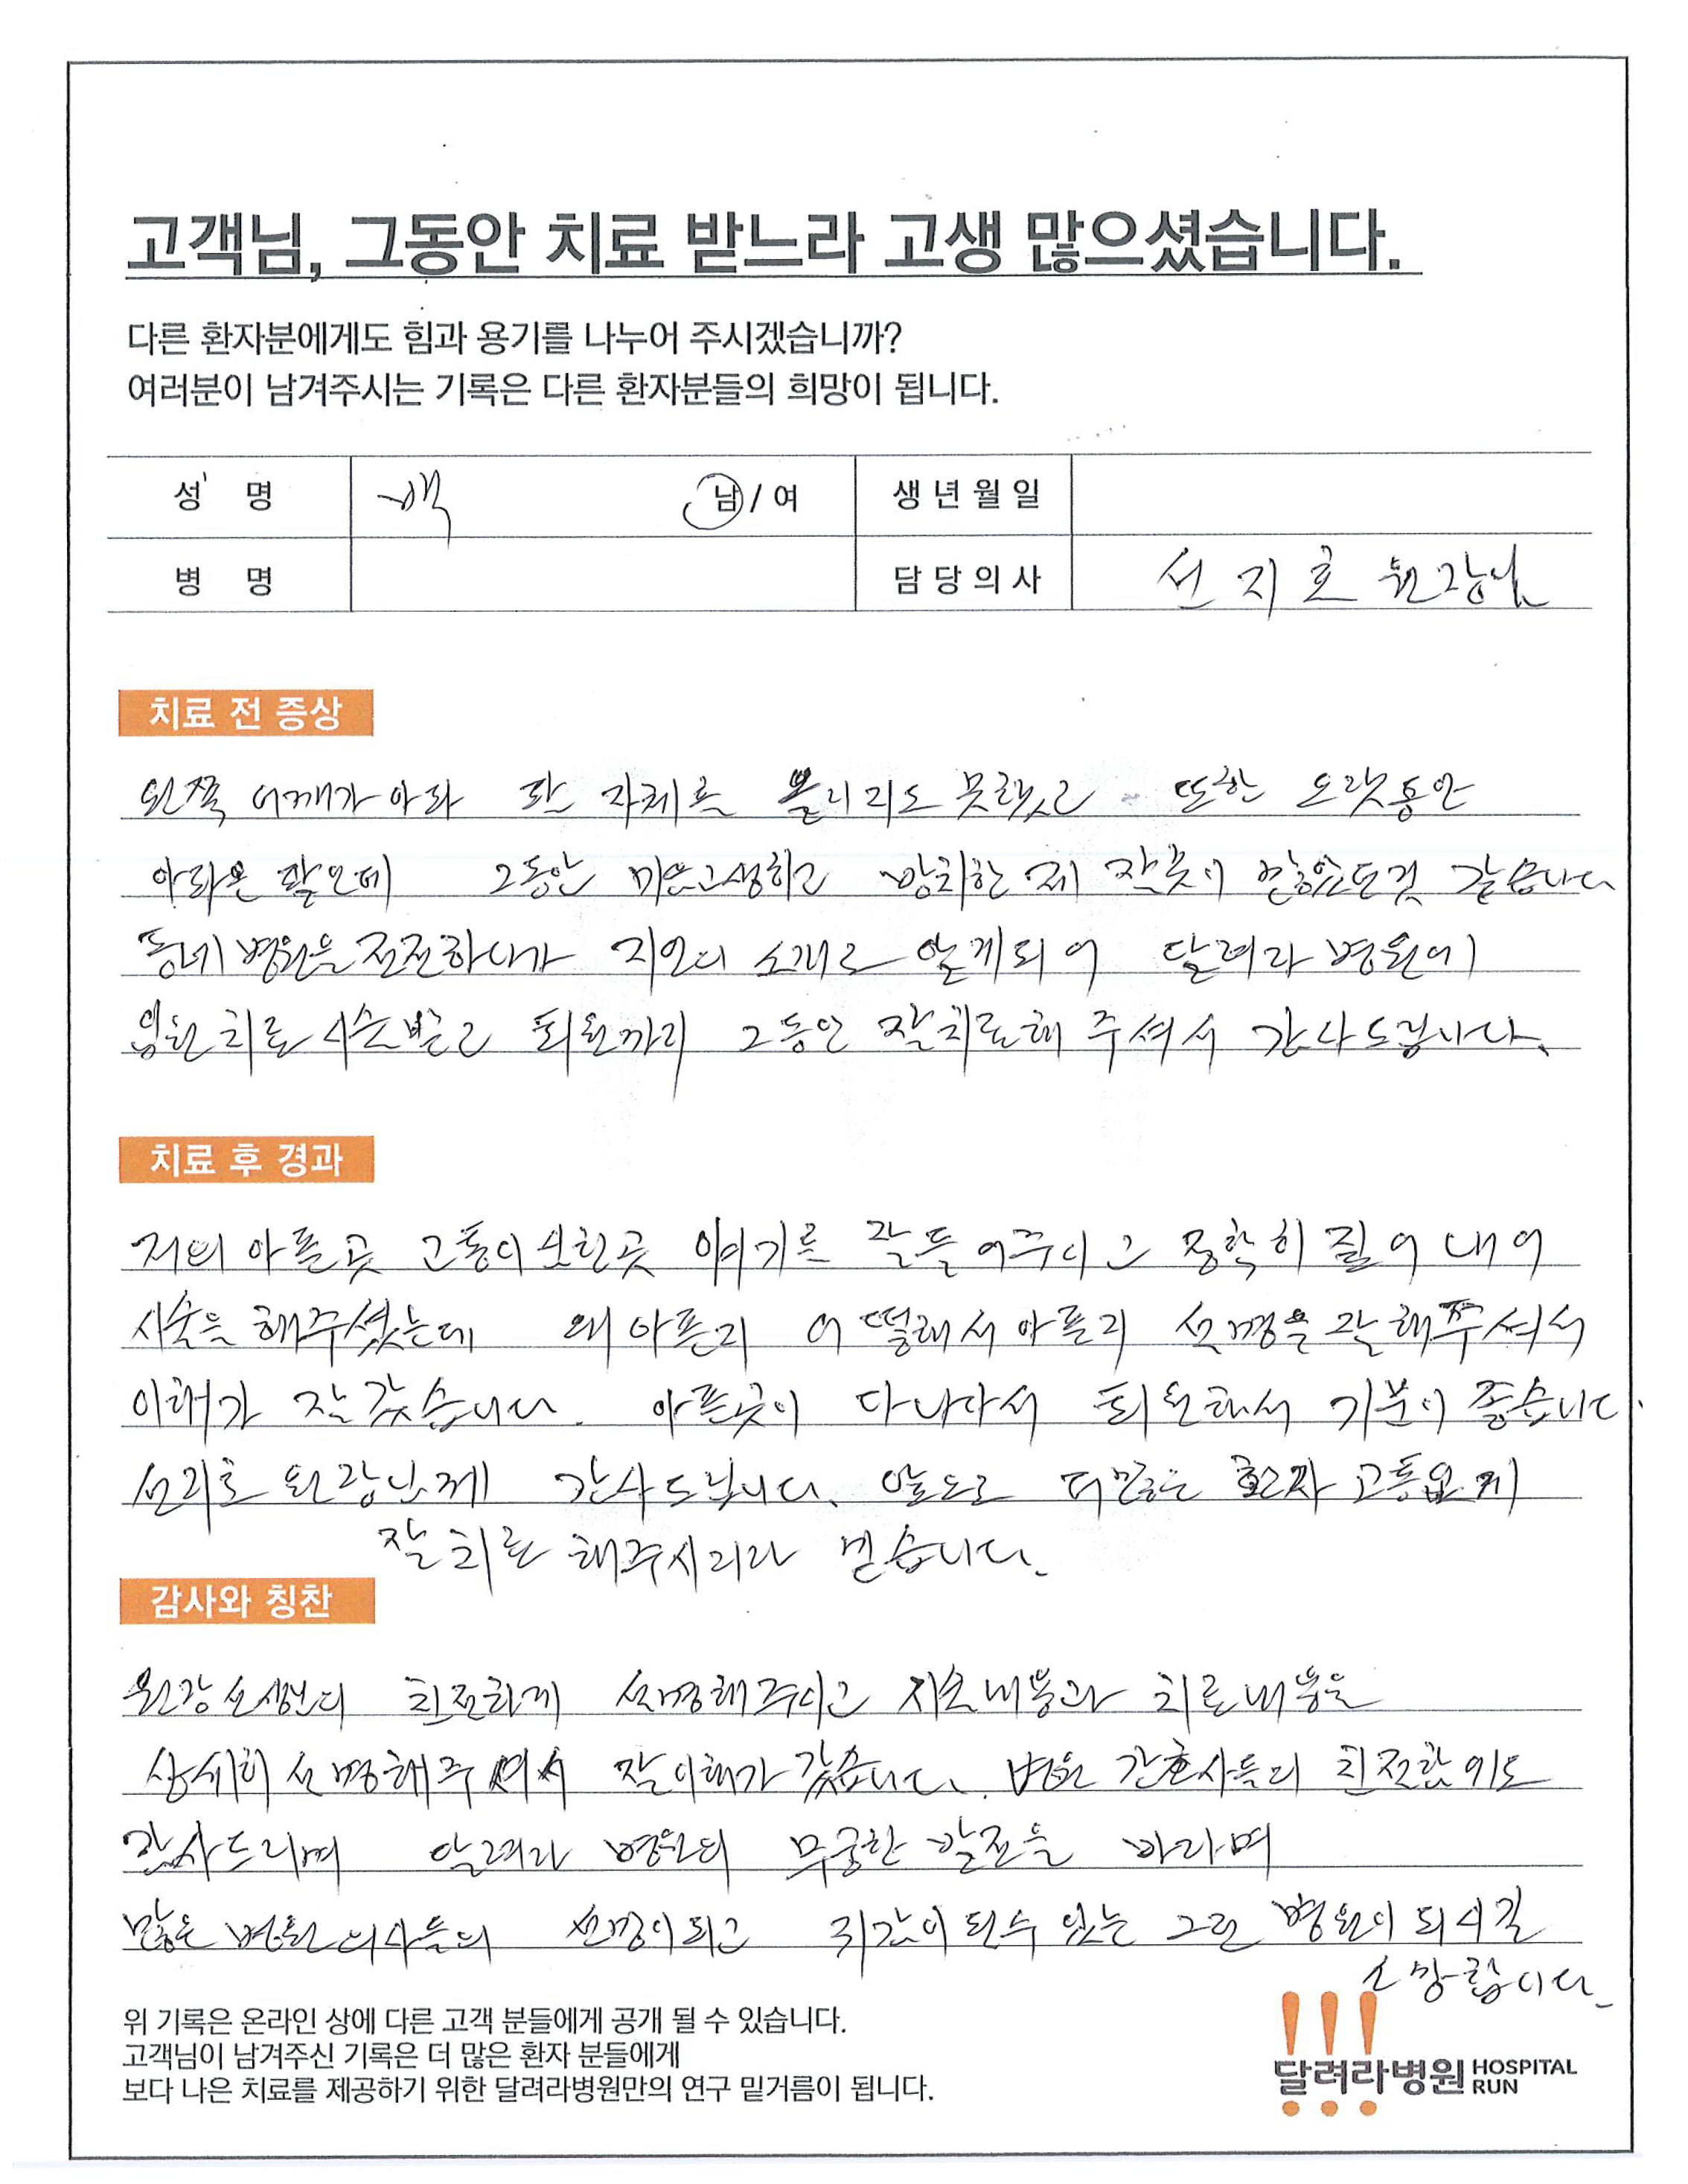 고객님, 그동안 치료 받느라 고생 많으셨습니다.
다른 환자분에게도 힘과 용기를 나누어 주시겠습니까?
여러분이 남겨주시는 기록은 다른 환자분들의 희망이 됩니다.
성 명 백 남 / 여 생년월일
병 명 담당의사 선지호 원장님
치료 전 증상
왼쪽 어깨가 아파 팔 자체를 올리지도 못했고 또한 오랫동안
아파온 팔인데 그동안 고생하고 방치한 제 잘못이 같습니다
동네 병원을 전전하다가 지인의 소개로 알게되어 달려라 병원에
입원치료 시술받고 퇴원까지 그동안 잘치료해 주셔서 감사드립니다.
치료 후 경과
저의 아픈곳 고통이 심한곳 얘기를 잘들어주시고 정확히 집어내어
시술을 해주셨는데 왜 아픈지 어떻해서 아픈지 설명을 잘해주셔서
이해가 잘 갔습니다. 아픈곳이 다 나아서 퇴원해서 기분이 좋습니다.
선지호 원장님께 감사드립니다. 앞으로 더많은 환자 고통없게
잘 치료 해주시리라 믿습니다.
감사와 칭찬
원장 선생님이 친절하게 설명해주시고 시술내용과 치료내용을
상세히 설명해주셔서 잘 이해가 갔습니다. 병원 간호사들의 친절함에도
감사드리며 달려라 병원의 무궁한 발전을 바라며
많은 병원 의사들의 선경이 되고 귀감이 될수 있는 그런 병원이 되시길
소망합니다.
위 기록은 온라인 상에 다른 고객 분들에게 공개 될 수 있습니다.
고객님이 남겨주신 기록은 더 많은 환자 분들에게
보다 나은 치료를 제공하기 위한 달려라병원만의 연구 밑거름이 됩니다.
달려라병원 HOSPITAL RUN